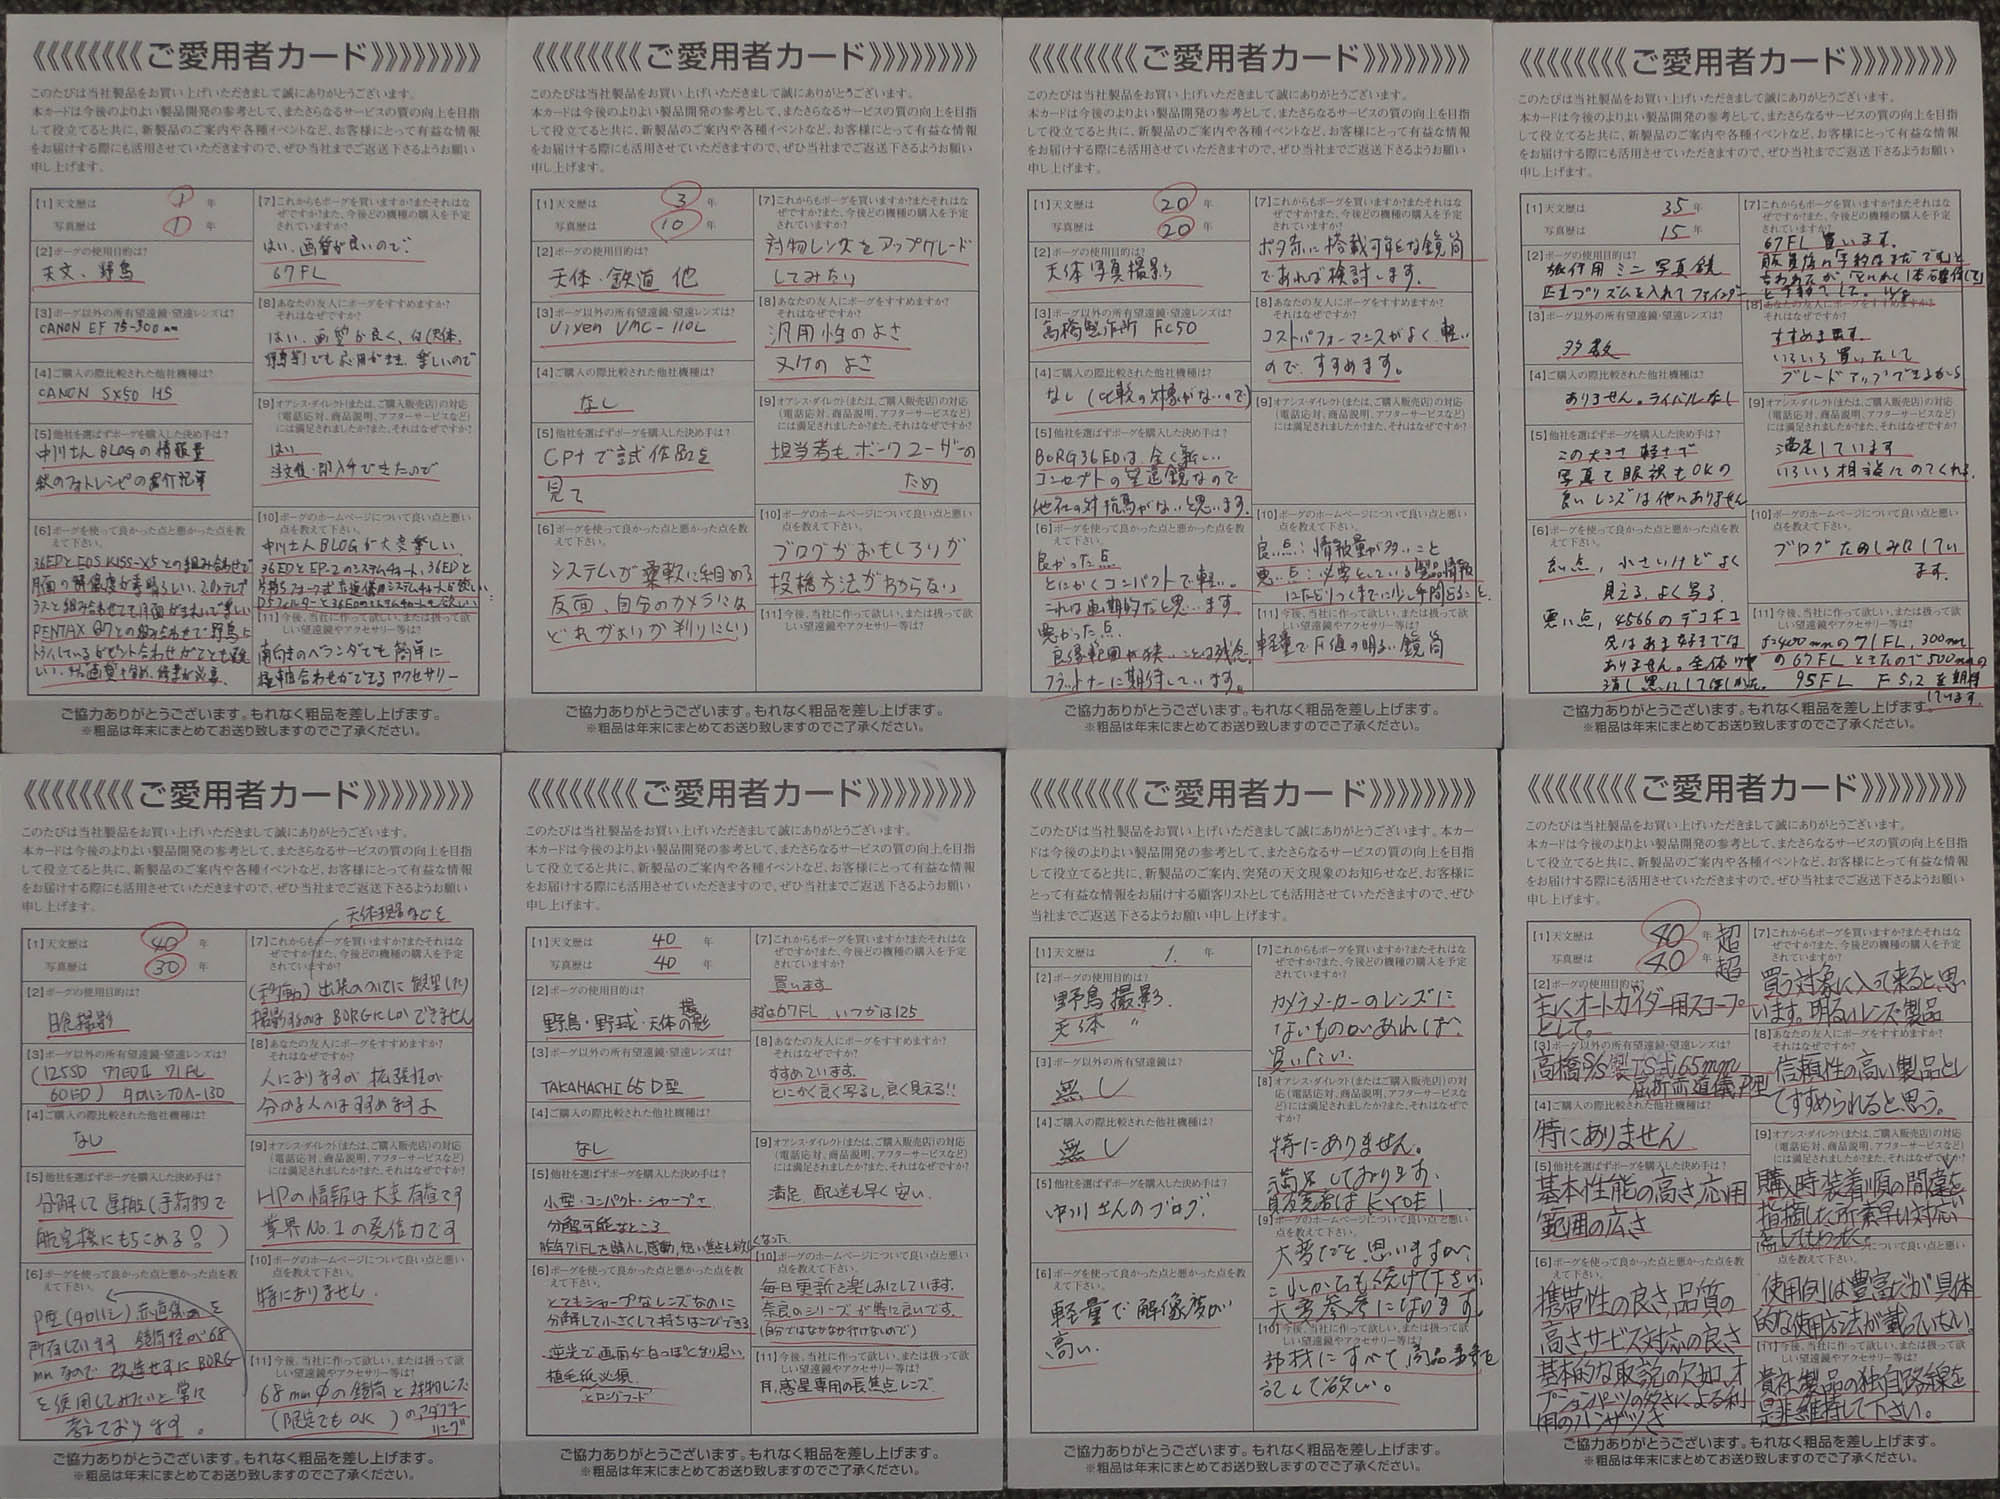 《《《《《《《《ご愛用者カード》》》》》》》》
このたびは当社製品をお買い上げいただきまして誠にありがとうございます。
本カードは今後のよりよい製品開発の参考として、またさらなるサービスの質の向上を目指
して役立てると共に、新製品のご案内や各種イベントなど、お客様にとって有益な情報
をお届けする際にも活用させていただきますので、ぜひ当社までご返送下さるようお願い
申し上げます。
【1】天文歴は 1 年
写真歴は 1 年
【2】ボーグの使用目的は?
天文、野鳥
【3】ボーグ以外の所有望遠鏡・望遠レンズは?
CANON EF 75-300mm
【4】ご購入の際比較された他社機種は?
CANON SX50 HS
【5】他社を選ばずボーグを購入した決め手は?
中川さんBLOGの情報量
【6】ボーグを使って良かった点と悪かった点を教
えて下さい。
36EDとEOS KISS-X5との組み合わせで
月面の解像度が素晴らしい。
【7】これからもボーグを買いますか?またそれはな
ぜですか?また、今後どの機種の購入を予定
されていますか?
はい、画質が良いので。
67FL
【8】あなたの友人にボーグをすすめますか?
それはなぜですか?
はい、画質が良く、
楽しいので
【9】オアシス・ダイレクト(または、ご購入販売店)の対応
(電話応対、商品説明、アフターサービスなど)
には満足されましたか?また、それはなぜですか?
はい
【10】ボーグのホームページについて良い点と悪い
点を教えて下さい。
中川さんBLOGが大変楽しい
【11】今後、当社に作って欲しい、または扱って欲
しい望遠鏡やアクセサリー等は?
南向きのベランダでも簡単に
極軸合わせができるアクセサリー
ご協力ありがとうございます。もれなく粗品を差し上げます。
※粗品は年末にまとめてお送り致しますのでご了承ください。
《《《《《《《《ご愛用者カード》》》》》》》》
このたびは当社製品をお買い上げいただきまして誠にありがとうございます。
本カードは今後のよりよい製品開発の参考として、またさらなるサービスの質の向上を目指
して役立てると共に、新製品のご案内や各種イベントなど、お客様にとって有益な情報
をお届けする際にも活用させていただきますので、ぜひ当社までご返送下さるようお願い
申し上げます。
【1】天文歴は 3 年
写真歴は 10 年
【2】ボーグの使用目的は?
天体・鉄道 他
【3】ボーグ以外の所有望遠鏡・望遠レンズは?
Vixen VMC-110L
【4】ご購入の際比較された他社機種は?
なし
【5】他社を選ばずボーグを購入した決め手は?
CP+で試作品を
見て
【6】ボーグを使って良かった点と悪かった点を教
えて下さい。
システムが柔軟に組める
反面、自分のカメラには
どれがよいか判りにくい
【7】これからもボーグを買いますか?またそれはな
ぜですか?また、今後どの機種の購入を予定
されていますか?
対物レンズをアップグレード
してみたい
【8】あなたの友人にボーグをすすめますか?
それはなぜですか?
汎用性のよさ
ヌケのよさ
【9】オアシス・ダイレクト(または、ご購入販売店)の対応
(電話応対、商品説明、アフターサービスなど)
には満足されましたか?また、それはなぜですか?
担当者もボーグユーザーの
ため
【10】ボーグのホームページについて良い点と悪い
点を教えて下さい。
ブログがおもしろいが
投稿方法がわからない
【11】今後、当社に作って欲しい、または扱って欲
しい望遠鏡やアクセサリー等は?
ご協力ありがとうございます。もれなく粗品を差し上げます。
※粗品は年末にまとめてお送り致しますのでご了承ください。
《《《《《《《《ご愛用者カード》》》》》》》》
このたびは当社製品をお買い上げいただきまして誠にありがとうございます。
本カードは今後のよりよい製品開発の参考として、またさらなるサービスの質の向上を目指
して役立てると共に、新製品のご案内や各種イベントなど、お客様にとって有益な情報
をお届けする際にも活用させていただきますので、ぜひ当社までご返送下さるようお願い
申し上げます。
【1】天文歴は 20 年
写真歴は 20 年
【2】ボーグの使用目的は?
天体写真撮影
【3】ボーグ以外の所有望遠鏡・望遠レンズは?
高橋製作所 FC50
【4】ご購入の際比較された他社機種は?
なし(比較の対象がないので)
【5】他社を選ばずボーグを購入した決め手は?
BORG36EDは、全く新しい
コンセプトの望遠鏡なので
他社の対抗馬がないと思います。
【6】ボーグを使って良かった点と悪かった点を教
えて下さい。
良かった点
とにかくコンパクトで軽い。
これは画期的だと思います
悪かった点
良像範囲が狭いことは残念。
フラットナーに期待しています。
【7】これからもボーグを買いますか?またそれはな
ぜですか?また、今後どの機種の購入を予定
されていますか?
ポタ赤に搭載可能な鏡筒
であれば検討します。
【8】あなたの友人にボーグをすすめますか?
それはなぜですか?
コストパフォーマンスがよく、軽い
ので、すすめます。
【9】オアシス・ダイレクト(または、ご購入販売店)の対応
(電話応対、商品説明、アフターサービスなど)
には満足されましたか?また、それはなぜですか?
【10】ボーグのホームページについて良い点と悪い
点を教えて下さい。
良い点:情報量が多いこと
悪い点:必要としている製品情報
にたどりつくまでに少し手間どること。
【11】今後、当社に作って欲しい、または扱って欲
しい望遠鏡やアクセサリー等は?
軽量でF値の明るい鏡筒
ご協力ありがとうございます。もれなく粗品を差し上げます。
※粗品は年末にまとめてお送り致しますのでご了承ください。
《《《《《《《《ご愛用者カード》》》》》》》》
このたびは当社製品をお買い上げいただきまして誠にありがとうございます。
本カードは今後のよりよい製品開発の参考として、またさらなるサービスの質の向上を目指
して役立てると共に、新製品のご案内や各種イベントなど、お客様にとって有益な情報
をお届けする際にも活用させていただきますので、ぜひ当社までご返送下さるようお願い
申し上げます。
【1】天文歴は 35 年
写真歴は 15 年
【2】ボーグの使用目的は?
旅行用 ミニ写真鏡
正立プリズムを入れてファインダー
【3】ボーグ以外の所有望遠鏡・望遠レンズは?
多数
【4】ご購入の際比較された他社機種は?
ありません。ライバルなし
【5】他社を選ばずボーグを購入した決め手は?
この大きさ 軽さで
写真も眼視もOKの
良いレンズは他にありません
【6】ボーグを使って良かった点と悪かった点を教
えて下さい。
良い点、小さいけどよく
見える、よく写る。
悪い点、4566のデコボコ
ありません。
【7】これからもボーグを買いますか?またそれはな
ぜですか?また、今後どの機種の購入を予定
されていますか?
67FL 買います。
【8】あなたの友人にボーグをすすめますか?
それはなぜですか?
すすめます。
いろいろ買いたして
グレードアップできるから
【9】オアシス・ダイレクト(または、ご購入販売店)の対応
(電話応対、商品説明、アフターサービスなど)
には満足されましたか?また、それはなぜですか?
満足しています
いろいろ相談にのてくれる
【10】ボーグのホームページについて良い点と悪い
点を教えて下さい。
ブログたのしみにしてい
ます。
【11】今後、当社に作って欲しい、または扱って欲
しい望遠鏡やアクセサリー等は?
f=400mmの71FL、300mm
の67FLときたので500mmの
95FL F5.2を期待
しています。
ご協力ありがとうございます。もれなく粗品を差し上げます。
※粗品は年末にまとめてお送り致しますのでご了承ください。
《《《《《《《《ご愛用者カード》》》》》》》》
このたびは当社製品をお買い上げいただきまして誠にありがとうございます。
本カードは今後のよりよい製品開発の参考として、またさらなるサービスの質の向上を目指
して役立てると共に、新製品のご案内や各種イベントなど、お客様にとって有益な情報
をお届けする際にも活用させていただきますので、ぜひ当社までご返送下さるようお願い
申し上げます。
【1】天文歴は 40 年
写真歴は 30 年
【2】ボーグの使用目的は?
日食撮影
【3】ボーグ以外の所有望遠鏡・望遠レンズは?
(125SD 77EDII 71FL
60ED)
【4】ご購入の際比較された他社機種は?
なし
【5】他社を選ばずボーグを購入した決め手は?
分解して運搬(手荷物で
航空機にもちこめる?)
【6】ボーグを使って良かった点と悪かった点を教
えて下さい。
P型(タカハシ)赤道儀を
所有しています 鏡筒径が68
mmなので 改造せずにBORG
を使用してみたいと常に
考えております。
天体現象などを
【7】これからもボーグを買いますか?またそれはな
ぜですか?また、今後どの機種の購入を予定
されていますか?
出張のついでに観望したり
撮影するのはBORGにしかできません
【8】あなたの友人にボーグをすすめますか?
それはなぜですか?
人によりますが 拡張性が
分かる人へはすすめますよ
【9】オアシス・ダイレクト(または、ご購入販売店)の対応
(電話応対、商品説明、アフターサービスなど)
には満足されましたか?また、それはなぜですか?
HPの情報は大変有益です
業界No.1の発信力です
【10】ボーグのホームページについて良い点と悪い
点を教えて下さい。
特にありません.
【11】今後、当社に作って欲しい、または扱って欲
しい望遠鏡やアクセサリー等は?
68mmφの鏡筒と対物レンズ
(限定でもOK)のアダプター
リング
ご協力ありがとうございます。もれなく粗品を差し上げます。
※粗品は年末にまとめてお送り致しますのでご了承ください。
《《《《《《《《ご愛用者カード》》》》》》》》
このたびは当社製品をお買い上げいただきまして誠にありがとうございます。
本カードは今後のよりよい製品開発の参考として、またさらなるサービスの質の向上を目指
して役立てると共に、新製品のご案内や各種イベントなど、お客様にとって有益な情報
をお届けする際にも活用させていただきますので、ぜひ当社までご返送下さるようお願い
申し上げます。
【1】天文歴は 40 年
写真歴は 40 年
【2】ボーグの使用目的は?
野鳥・野球・天体の撮影
【3】ボーグ以外の所有望遠鏡・望遠レンズは?
TAKAHASHI 65 D型
【4】ご購入の際比較された他社機種は?
なし
【5】他社を選ばずボーグを購入した決め手は?
小型・コンパクト・シャープさ
分解可能なところ
昨年71FLを購入し感動、短い焦点も欲しくなった
【6】ボーグを使って良かった点と悪かった点を教
えて下さい。
とてもシャープなレンズなのに
分解して小さくして持ちはこびできる
逆光で画面が白っぽくなり易い
植毛紙必須
とロングフード
【7】これからもボーグを買いますか?またそれはな
ぜですか?また、今後どの機種の購入を予定
されていますか?
買います
まずは67FL いつかは125
【8】あなたの友人にボーグをすすめますか?
それはなぜですか?
すすめています。
とにかく良く写るし、良く見える!!
【9】オアシス・ダイレクト(または、ご購入販売店)の対応
(電話応対、商品説明、アフターサービスなど)
には満足されましたか?また、それはなぜですか?
満足 配送も早く安い
【10】ボーグのホームページについて良い点と悪い
点を教えて下さい。
毎日更新を楽しみにしています。
奈良のシリーズが特に良いです。
(自分ではなかなか行けないので)
【11】今後、当社に作って欲しい、または扱って欲
しい望遠鏡やアクセサリー等は?
月、惑星専用の長焦点レンズ
ご協力ありがとうございます。もれなく粗品を差し上げます。
※粗品は年末にまとめてお送り致しますのでご了承ください。
《《《《《《《《ご愛用者カード》》》》》》》》
このたびは当社製品をお買い上げいただきまして誠にありがとうございます。本カー
ドは今後のよりよい製品開発の参考として、またさらなるサービスの質の向上を目指
して役立てると共に、新製品のご案内、突発の天文現象のお知らせなど、お客様に
とって有益な情報をお届けする顧客リストとしても活用させていただきますので、ぜひ
当社までご返送下さるようお願い申し上げます。
【1】天文歴は 1. 年
【2】ボーグの使用目的は?
野鳥撮影.
天体 〃
【3】ボーグ以外の所有望遠鏡は?
無し
【4】ご購入の際比較された他社機種は?
無し
【5】他社を選ばずボーグを購入した決め手は?
中川さんのブログ.
【6】ボーグを使って良かった点と悪かった点を教
えて下さい。
軽量で解像度が
高い.
【7】これからもボーグを買いますか?またそれはな
ぜですか?また、今後どの機種の購入を予定
されていますか?
カメラメーカーのレンズに
ないものがあれば、
買いたい.
【8】オアシス・ダイレクト(または、ご購入販売店)の対
応(電話応対、商品説明、アフターサービスな
ど)には満足されましたか?また、それはなぜで
すか?
特にありません。
満足しております.
販売店はKYOEI
【9】ボーグのホームページについて良い点と悪い
点を教えて下さい。
大変だと思いますが、
これからも続けて下さい.
大変参考になります。
【10】今後、当社に作って欲しい、または扱って欲
しい望遠鏡やアクセサリー等は?
部材にすべて商品番号を
記して欲しい。
ご協力ありがとうございます。もれなく粗品を差し上げます。
※粗品は年末にまとめてお送り致しますのでご了承ください。
《《《《《《《《ご愛用者カード》》》》》》》》
このたびは当社製品をお買い上げいただきまして誠にありがとうございます。
本カードは今後のよりよい製品開発の参考として、またさらなるサービスの質の向上を目指
して役立てると共に、新製品のご案内や各種イベントなど、お客様にとって有益な情報
をお届けする際にも活用させていただきますので、ぜひ当社までご返送下さるようお願い
申し上げます。
【1】天文歴は 40 年 超
写真歴は 40 年 超
【2】ボーグの使用目的は?
主にオートガイダー用スコープ
として。
【3】ボーグ以外の所有望遠鏡・望遠レンズは?
高橋S/S製TS式65mm
屈折赤道儀P型
【4】ご購入の際比較された他社機種は?
特にありません
【5】他社を選ばずボーグを購入した決め手は?
基本性能の高さ応用
範囲の広さ
【6】ボーグを使って良かった点と悪かった点を教
えて下さい。
携帯性の良さ、品質の
高さサービス対応の良さ
基本的な取説の欠如、オ
プションパーツの多さによる利
用のハンザツさ
【7】これからもボーグを買いますか?またそれはな
ぜですか?また、今後どの機種の購入を予定
されていますか?
買う対象に入って来ると思
います。明るいレンズ製品
【8】あなたの友人にボーグをすすめますか?
それはなぜですか?
信頼性の高い製品とし
てすすめられると思う。
【9】オアシス・ダイレクト(または、ご購入販売店)の対応
(電話応対、商品説明、アフターサービスなど)
には満足されましたか?また、それはなぜですか?
購入時装着順の間違を
指摘した所素早い対応い
点を教えて下さい。
使用例は豊富だが具体
的な使用方法が載っていない。
【11】今後、当社に作って欲しい、または扱って欲
しい望遠鏡やアクセサリー等は?
貴社製品の独自路線を
是非維持して下さい。
ご協力ありがとうございます。もれなく粗品を差し上げます。
※粗品は年末にまとめてお送り致しますのでご了承ください。